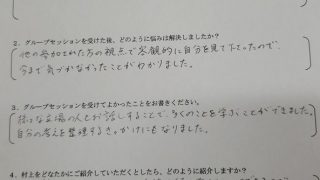 ２．グループセッションを受けた後、どのように悩みは解決しましたか？
他の参加された方の視点で客観的に自分を見て下さったので、
今まで気づかなかったことがわかりました。
３．グループセッションを受けてよかったことをお書きください。
様々な立場の人とお話しすることで、多くのことを学ぶことができました。
自分の考えを整理するきっかけにもなりました。
４．村上をどなたかにご紹介していただくとしたら、どのように紹介しますか？